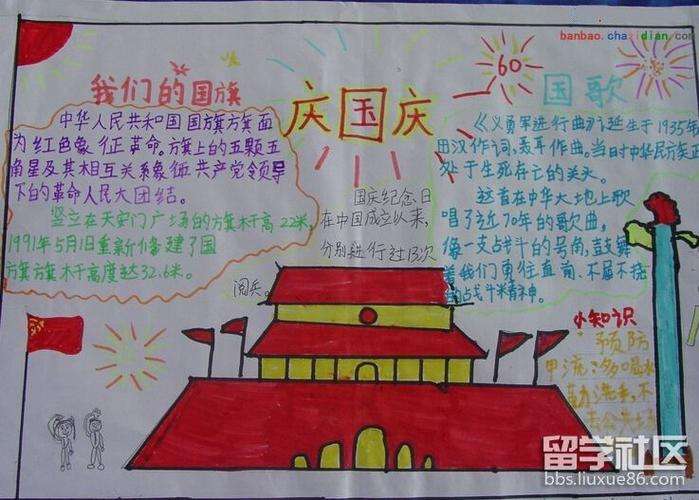 banbao.chazidian.com
我们的国旗
中华人民共和国国旗旗面
为红色象征革命。旗上的五颗五
角星及其相互关系象征共产党领导
下的革命人民大团结。
竖立在天安门广场的旗杆高22米,
1991年5月1日重新修建了国
旗旗杆高度达32.6米。
庆国庆
60
国庆纪念日
在中国成立以来,
分别进行过13次
阅兵。
国歌
《义勇军进行曲》诞生于1935年
田汉作词,聂耳作曲。当时中华民族正
处于生死存亡的关头。
这首在中华大地上歌
唱了近70年的歌曲,
像一支战斗的号角,鼓舞
着我们勇往直前、不屈不挠
的战斗精神。
小知识
预防
甲流:多喝水
勤洗手,不
去公共场
留学社区
bbs.liuxue86.com